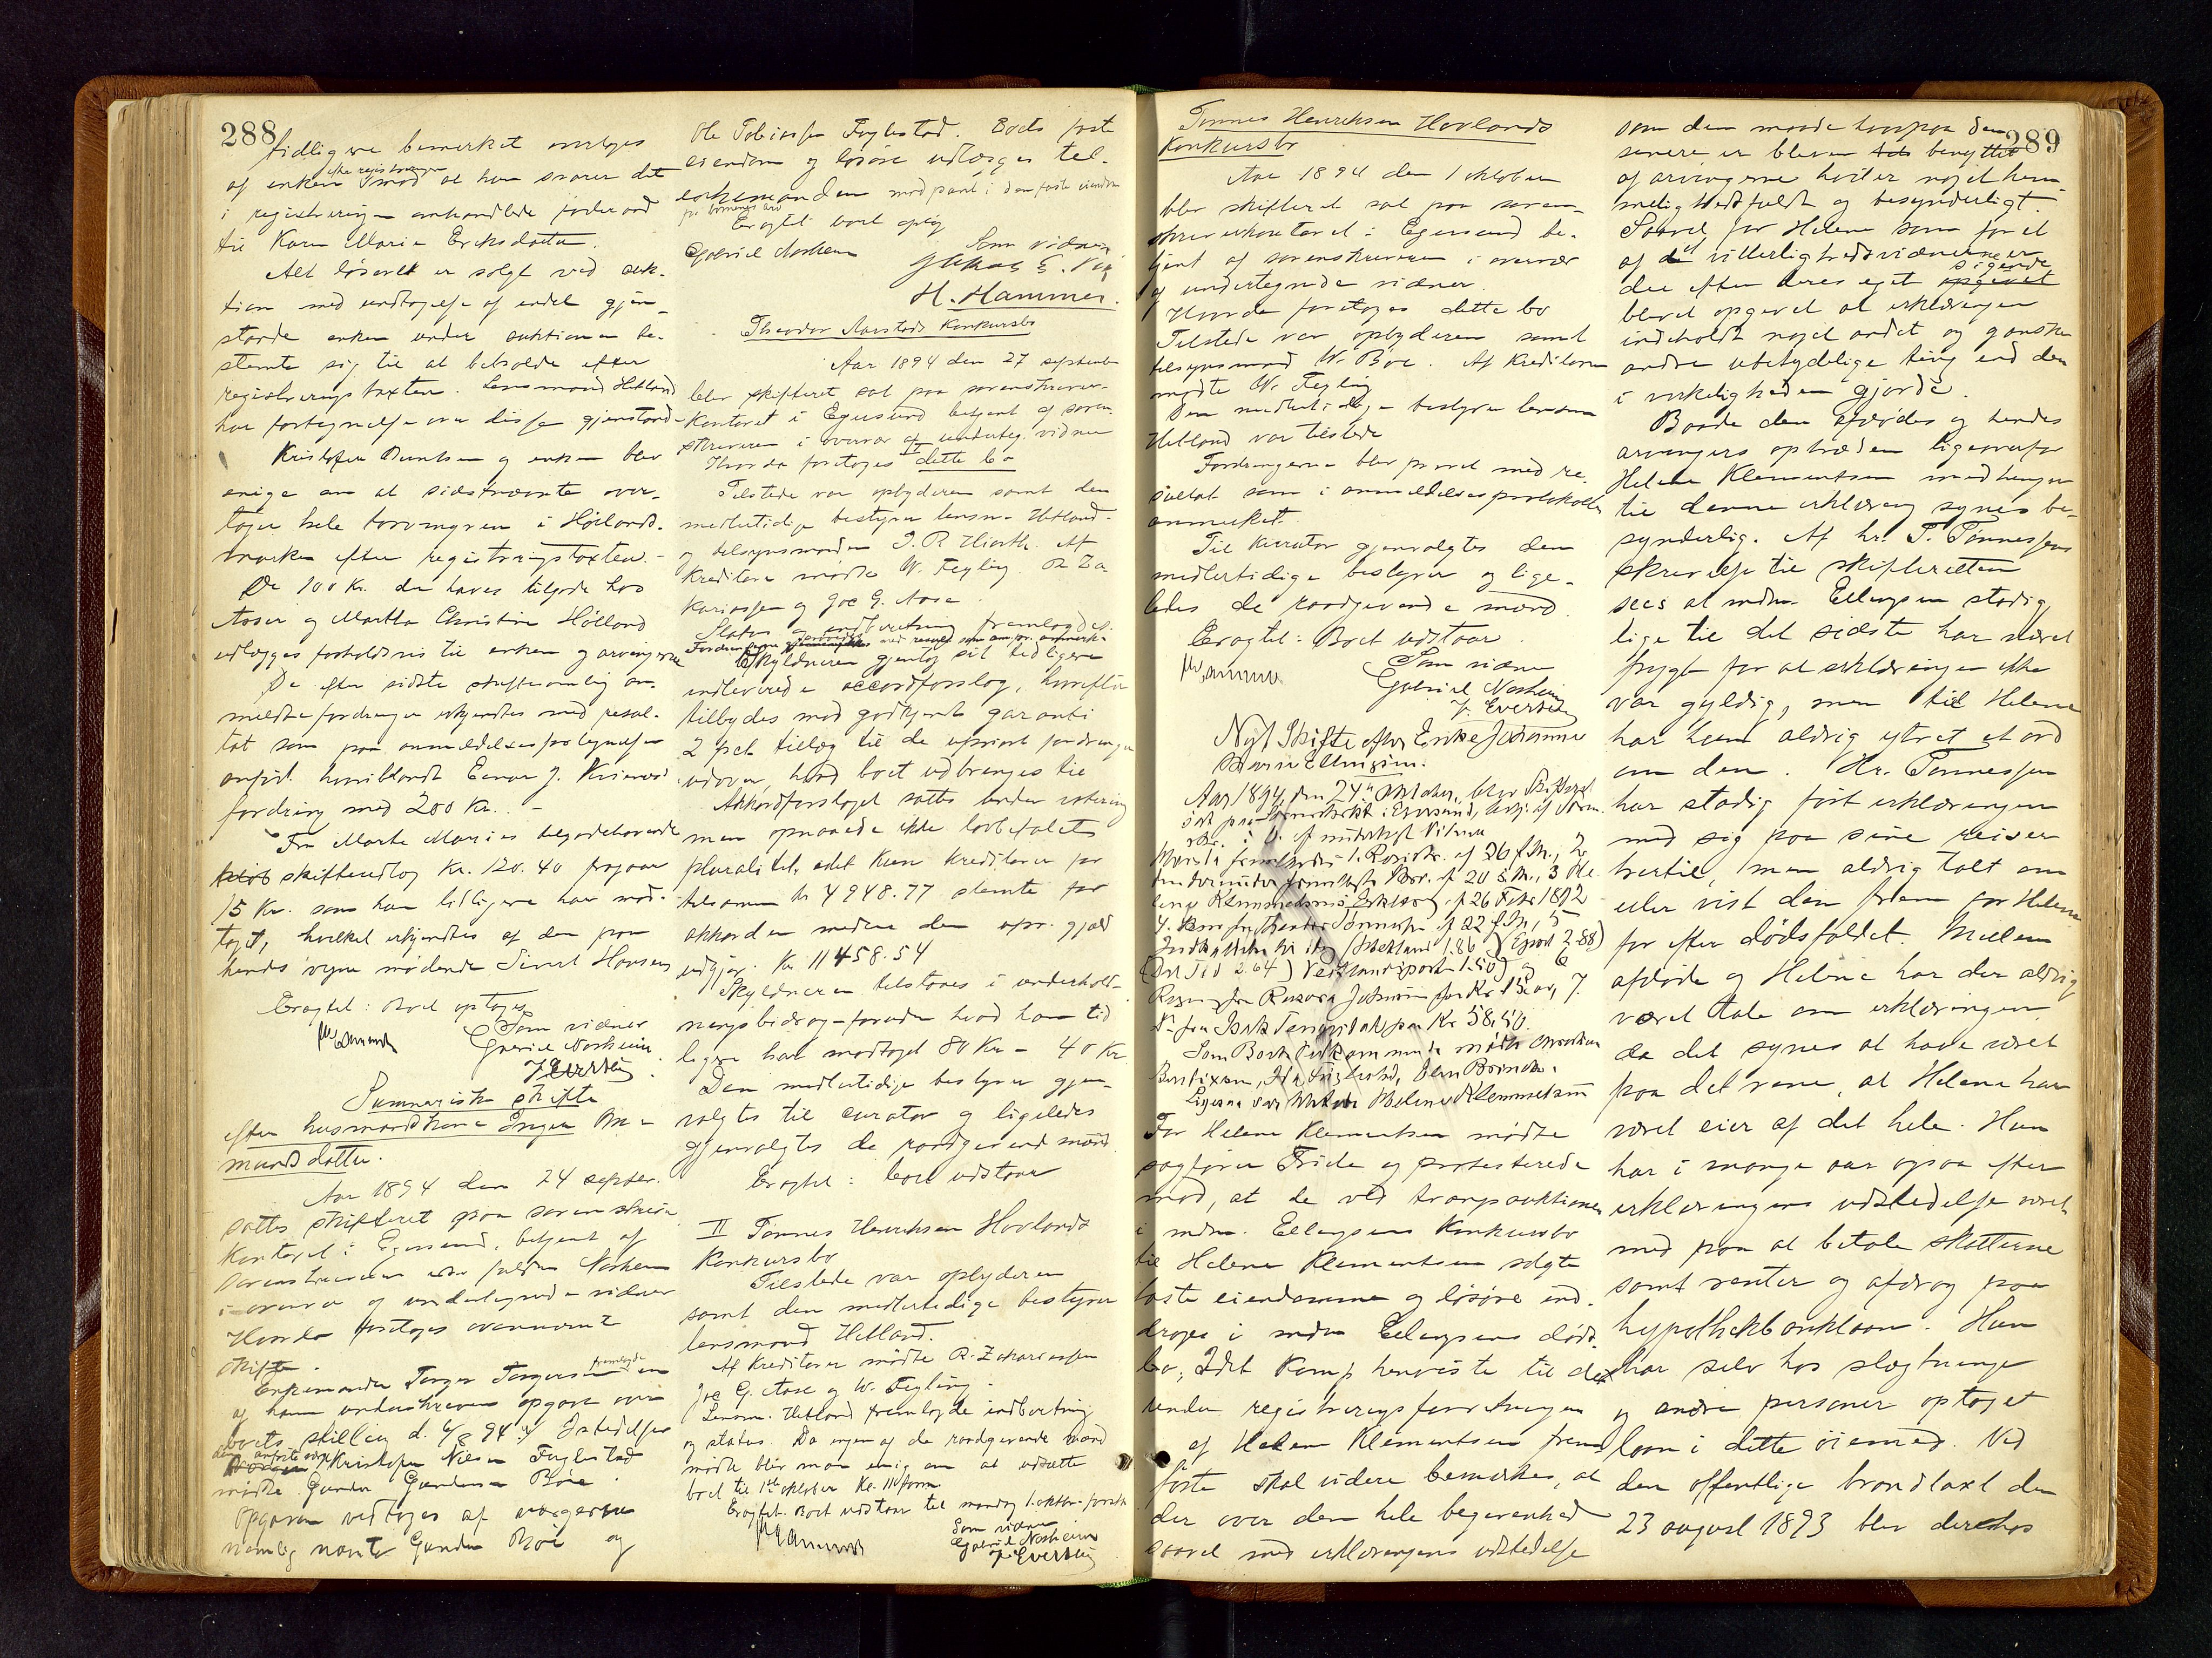 288
tidligere bemerket overtages
af enken efter registreringen mod at hun svarer det
i registreringen omhandlede foderaad
til Karen Maria Eriksdatter.
Alt løsøret er solgt ved auk-
tion med undtagelse af endel gjen-
stande enken under auktionen be-
stemte sig til at beholde efter
registreringstaxten. Lensmand Hetland
har fortegnelse over disse gjenstande
Kristofer Berntsen og enken blev
enige om at sidstnævnte over-
tager hele torvmyren i Hølands-
marken efter registreringstaxten.-
De 100 Kr. der haves tilgode hos
Aaser og Martha Christine Hölland
udlægges forholdsvis til enken og arvingerne
De efter sidste skiftesamling an-
meldte fordringer erkjendtes med resul-
tat som paa anmeldelsesfortegnelsen
anført. hvoriblandt Einar J.
fordring med 200 Kr. -
Fra Marte Maries tilgodehavende
skifteudlæg Kr. 120.40 fragaar
15 Kr. som hun tidligere har mod-
taget, hvilket erkjendtes af den paa
hendes vegne mødende Sivert Hansen
Eragtet: Boet optages
Som vidner
Gabriel Nesheim
J. Evertsen
Summarisk skifte
efter husmandskone Inger Om-
mundsdatter.
Aar 1894 den 24 septbr.
sattes skifteret paa sorenskriver
kontoret i Egersund, betjent af
sorenskriverens fuldm. Nesheim
i overvær af undertegnede vidner
Hvorda foretoges ovennævnte
skifte.
Enkemanden Torger Torgersen fremlagde en
af ham underskreven opgave over
boets stilling d. 6/8 94. Istedetfor
Kristofer Nilsen Fuglestad
mødte Gunder Gundersen Bøe.
Opgaven vedtoges af vergerne
nemlig nævnte Gunder Bøe og
Ole Tobiassen Fuglestad. Boets faste
eiendom og løsøre udlægges til
enkemanden mod pant i den faste eiendom
for børnenes arv
Eragtet: boet opleg
Gabriel Nesheim
Som vidner
Jakob E.
H. Hammer.
Theodor Aarstads Konkursbo
Aar 1894 den 27 september
blev skifteret sat paa sorenskriver-
kontoret i Egersund betjent af soren-
skriveren i overvær af underteg. vidner
Hvorda foretoges dette bo
Tilstede var opbyderen samt den
midlertidige bestyrer lensm. Hetland
og tilsynsmanden J. R. Hiorth. Af
kreditorer mødte W. Feyling. R. Za-
kariassen og Joe G. Aase.
Status og indberetning fremlagdes.
Skyldneren gjentog sit tidligere
indleverede accordforslag, hvorefter
tilbydes mod godkjendt garanti
2 pct tillæg til de uprior. fordringer
udover, hvad boet udbringes til
Akkordforslaget sattes under votering
men opnaaede ikke lovbefalet
pluralitet, idet kun kreditorer for
tilsammen kr 4948.77 stemte for
akkorden medens den upr. gjæld
udgjør Kr 11458.54
Skyldneren tilstaaes i underhold-
ningsbidrag foruden hvad han tid
ligere har modtaget 80 Kr - 40 Kr
Den midlertidige bestyrer gjen-
valgtes til curator og ligeledes
gjenvalgtes de raadgivende mænd
Eragtet: boet udstaar
II Tønnes Henriksen Hovlands
Konkursbo
Tilstede var opbyderen
samt den midlertidige bestyrer
lensmand Hetland.
Af kreditorer mødte R. Zakariassen
Joe G. Aase og W. Feyling.
Lensm. Hetland fremlagde indberetning
og status. Da ingen af de raadgivende mænd
mødte blev man enig om at udsætte
boet til 1ste oktober Kl. 11 form
Eragtet. Boet udstaar til mandag 1. oktbr. førstk.
Som vidner
Gabriel Nesheim
J. Evertsen
Tønnes Henriksen Hovlands
Konkursbo
Aar 1894 den 1 oktober
blev skifteret sat paa soren-
skriverkontoret i Egersund be-
tjent af sorenskriveren i overvær
af undertegnede vidner.
Hvorda foretoges dette bo
Tilstede var opbyderen samt
tilsynsmand W. Bøe. Af kreditorer
mødte W. Feyling
Den midlertidige bestyrer lensm
Hetland var tilstede
Fordringerne blev prøvet med re-
sultat som i anmeldelsesprotokollen
anmerket.
Til kurator gjenvalgtes den
midlertidige bestyrer og lige-
ledes de raadgivende mænd.
Eragtet: Boet udstaar.
Som vidner
Gabriel Nesheim
J. Evertsen
Nyt Skifte efter Enke Johanne
Marie Ellingsen.
Aar 1894, den 24de Oktober, blev Skifteret
sat paa i Egersund, betj. af Soren
skr. i O. af undertegt Vidner
Hvorda fremlagdes 1. Registr. af 26 f. M., 2
fremlagte Skr. af 20 d. M., 3 He
lene Klemmetsens Erklær. af 26 Febr 1892
4. Skr fra Tønnesen af 22 f. M., 5
(Hetland 1.86) (Egers 2.88)
(Dal Tid 2.64) Vestlandsposten 1.50) og 6
Regning fra Rasmus for Kr 15.00, 7.
Do fra for Kr 58.50.
Som mødte
Ligesaa var Helene Klemmetsen
For Helene Klementsen mødte
sagfører Feide og protesterede
mod, at de ved tvangsauktionen
i mdm. Ellingsens Konkursbo
til Helene Klementsen solgte
faste eiendomme og løsøre ind-
drages i mdm Ellingsens døds-
bo; Idet Komp. henviste til det
under registreringsforretningen
af Helene Klementsen frem
førte skal videre bemerkes, at
der over den hele begivenhed
saavel med erklæringens udstedelse
289
som den maade hvorpaa den
senere er bleven benyttet
af arvingerne hviler noget hem-
melighedsfuldt og besynderligt.
Saavel for Helene som for et
af de vitterlighedsvidnerne er
der efter deres eget sigende
blevet opgivet at erklæringen
indeholdt noget andet og ganske
andre ubetydelige ting end den
i virkeligheden gjorde.
Baade den afdødes og hendes
arvingers optræden ligeoverfor
Helene Klementsen medhensyn
til denne erklæring synes be-
synderlig. Af hr. T. Tønnessens
skrivelse til skifteretten
sees at mdm. Ellingsen stadig
lige til det sidste har næret
frygt for at erklæringen ikke
var gyldig, men til Helene
har hun aldrig ytret et ord
om den. Hr. Tønnessen
har stadig ført erklæringen
med sig paa sine reiser
hertil, men aldrig talt om
eller vist den frem for Helene
før efter dødsfaldet. Mellem
afdøde og Helene har der aldrig
været tale om erklæringen
da det synes at have været
paa det rene, at Helene har
været eier af det hele. Hun
har i mange aar ogsaa efter
erklæringens udstedelse været
med paa at betale skatterne
samt renter og afdrag paa
hypothekbanklaan. Hun
har selv hos slægtninge
og andre personer optaget
laan i dette øiemed. Ved
den offentlige brandtaxt den
23 august 1893 blev derhos